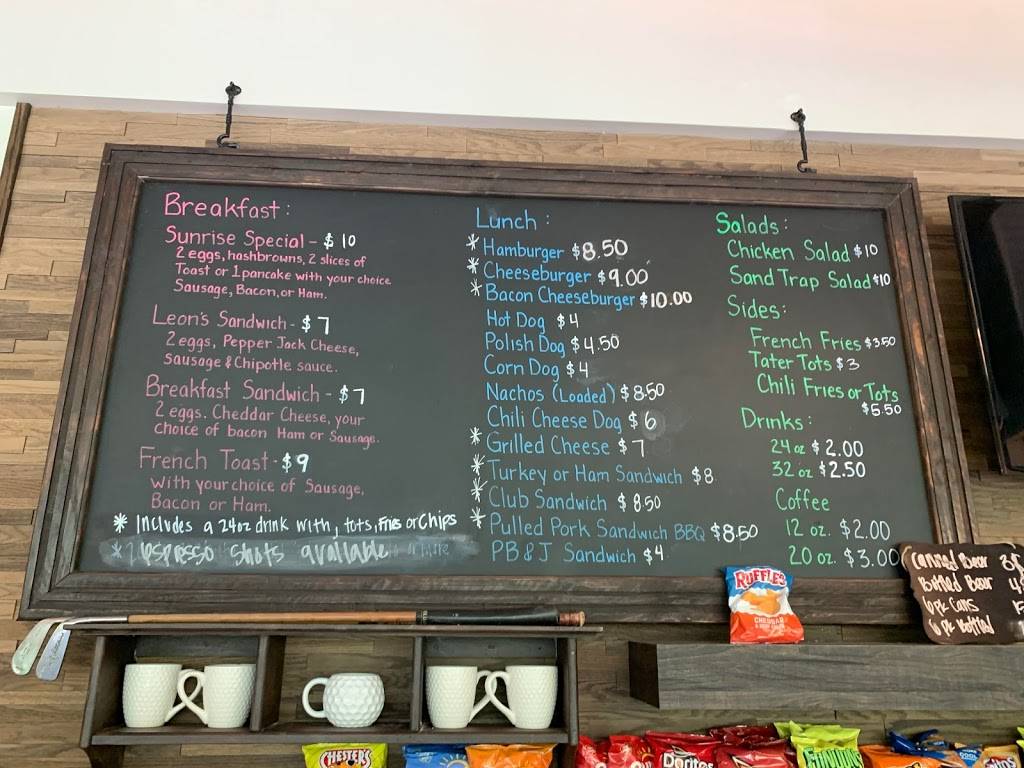 Breakfast:
Sunrise Special - $10
2 eggs, hashbrowns, 2 slices of
Toast or 1 pancake with your choice
Sausage, Bacon, or Ham.
Leon's Sandwich - $7
2 eggs, Pepper Jack Cheese,
Sausage & Chipotle sauce.
Breakfast Sandwich - $7
2 eggs. Cheddar Cheese, your
choice of bacon Ham or Sausage.
French Toast - $9
with your choice of Sausage,
Bacon or Ham.
* Includes a 24oz drink with, tots, Fries or Chips
shots available
Lunch:
* Hamburger $8.50
* Cheeseburger $9.00
* Bacon Cheeseburger $10.00
Hot Dog $4
Polish Dog $4.50
Corn Dog $4
Nachos (Loaded) $8.50
Chili Cheese Dog $6
* Grilled Cheese $7
* Turkey or Ham Sandwich $8
* Club Sandwich $8.50
* Pulled Pork Sandwich BBQ $8.50
PB&J Sandwich $4
Salads:
Chicken Salad $10
Sand Trap Salad $10
Sides:
French Fries $3.50
Tater Tots $3
Chili Fries or Tots
$5.50
Drinks:
24 oz $2.00
32 oz $2.50
Coffee
12 oz. $2.00
20 oz. $3.00
Canned Bear
Bottled Bear
6 pk Cans
6 pk Bottled
RUFFLES
CHEDDAR
CHESTER'S
Doritos
FUNYUNS